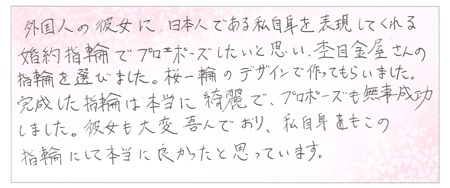 外国人の彼女に、日本人である私自身を表現してくれる
婚約指輪でプロポーズしたいと思い、杢目金屋さんの
指輪を選びました。桜一輪のデザインで作ってもらいました。
完成した指輪は本当に綺麗で、プロポーズも無事成功
しました。彼女も大変喜んでおり、私自身もこの
指輪にして本当に良かったと思っています。